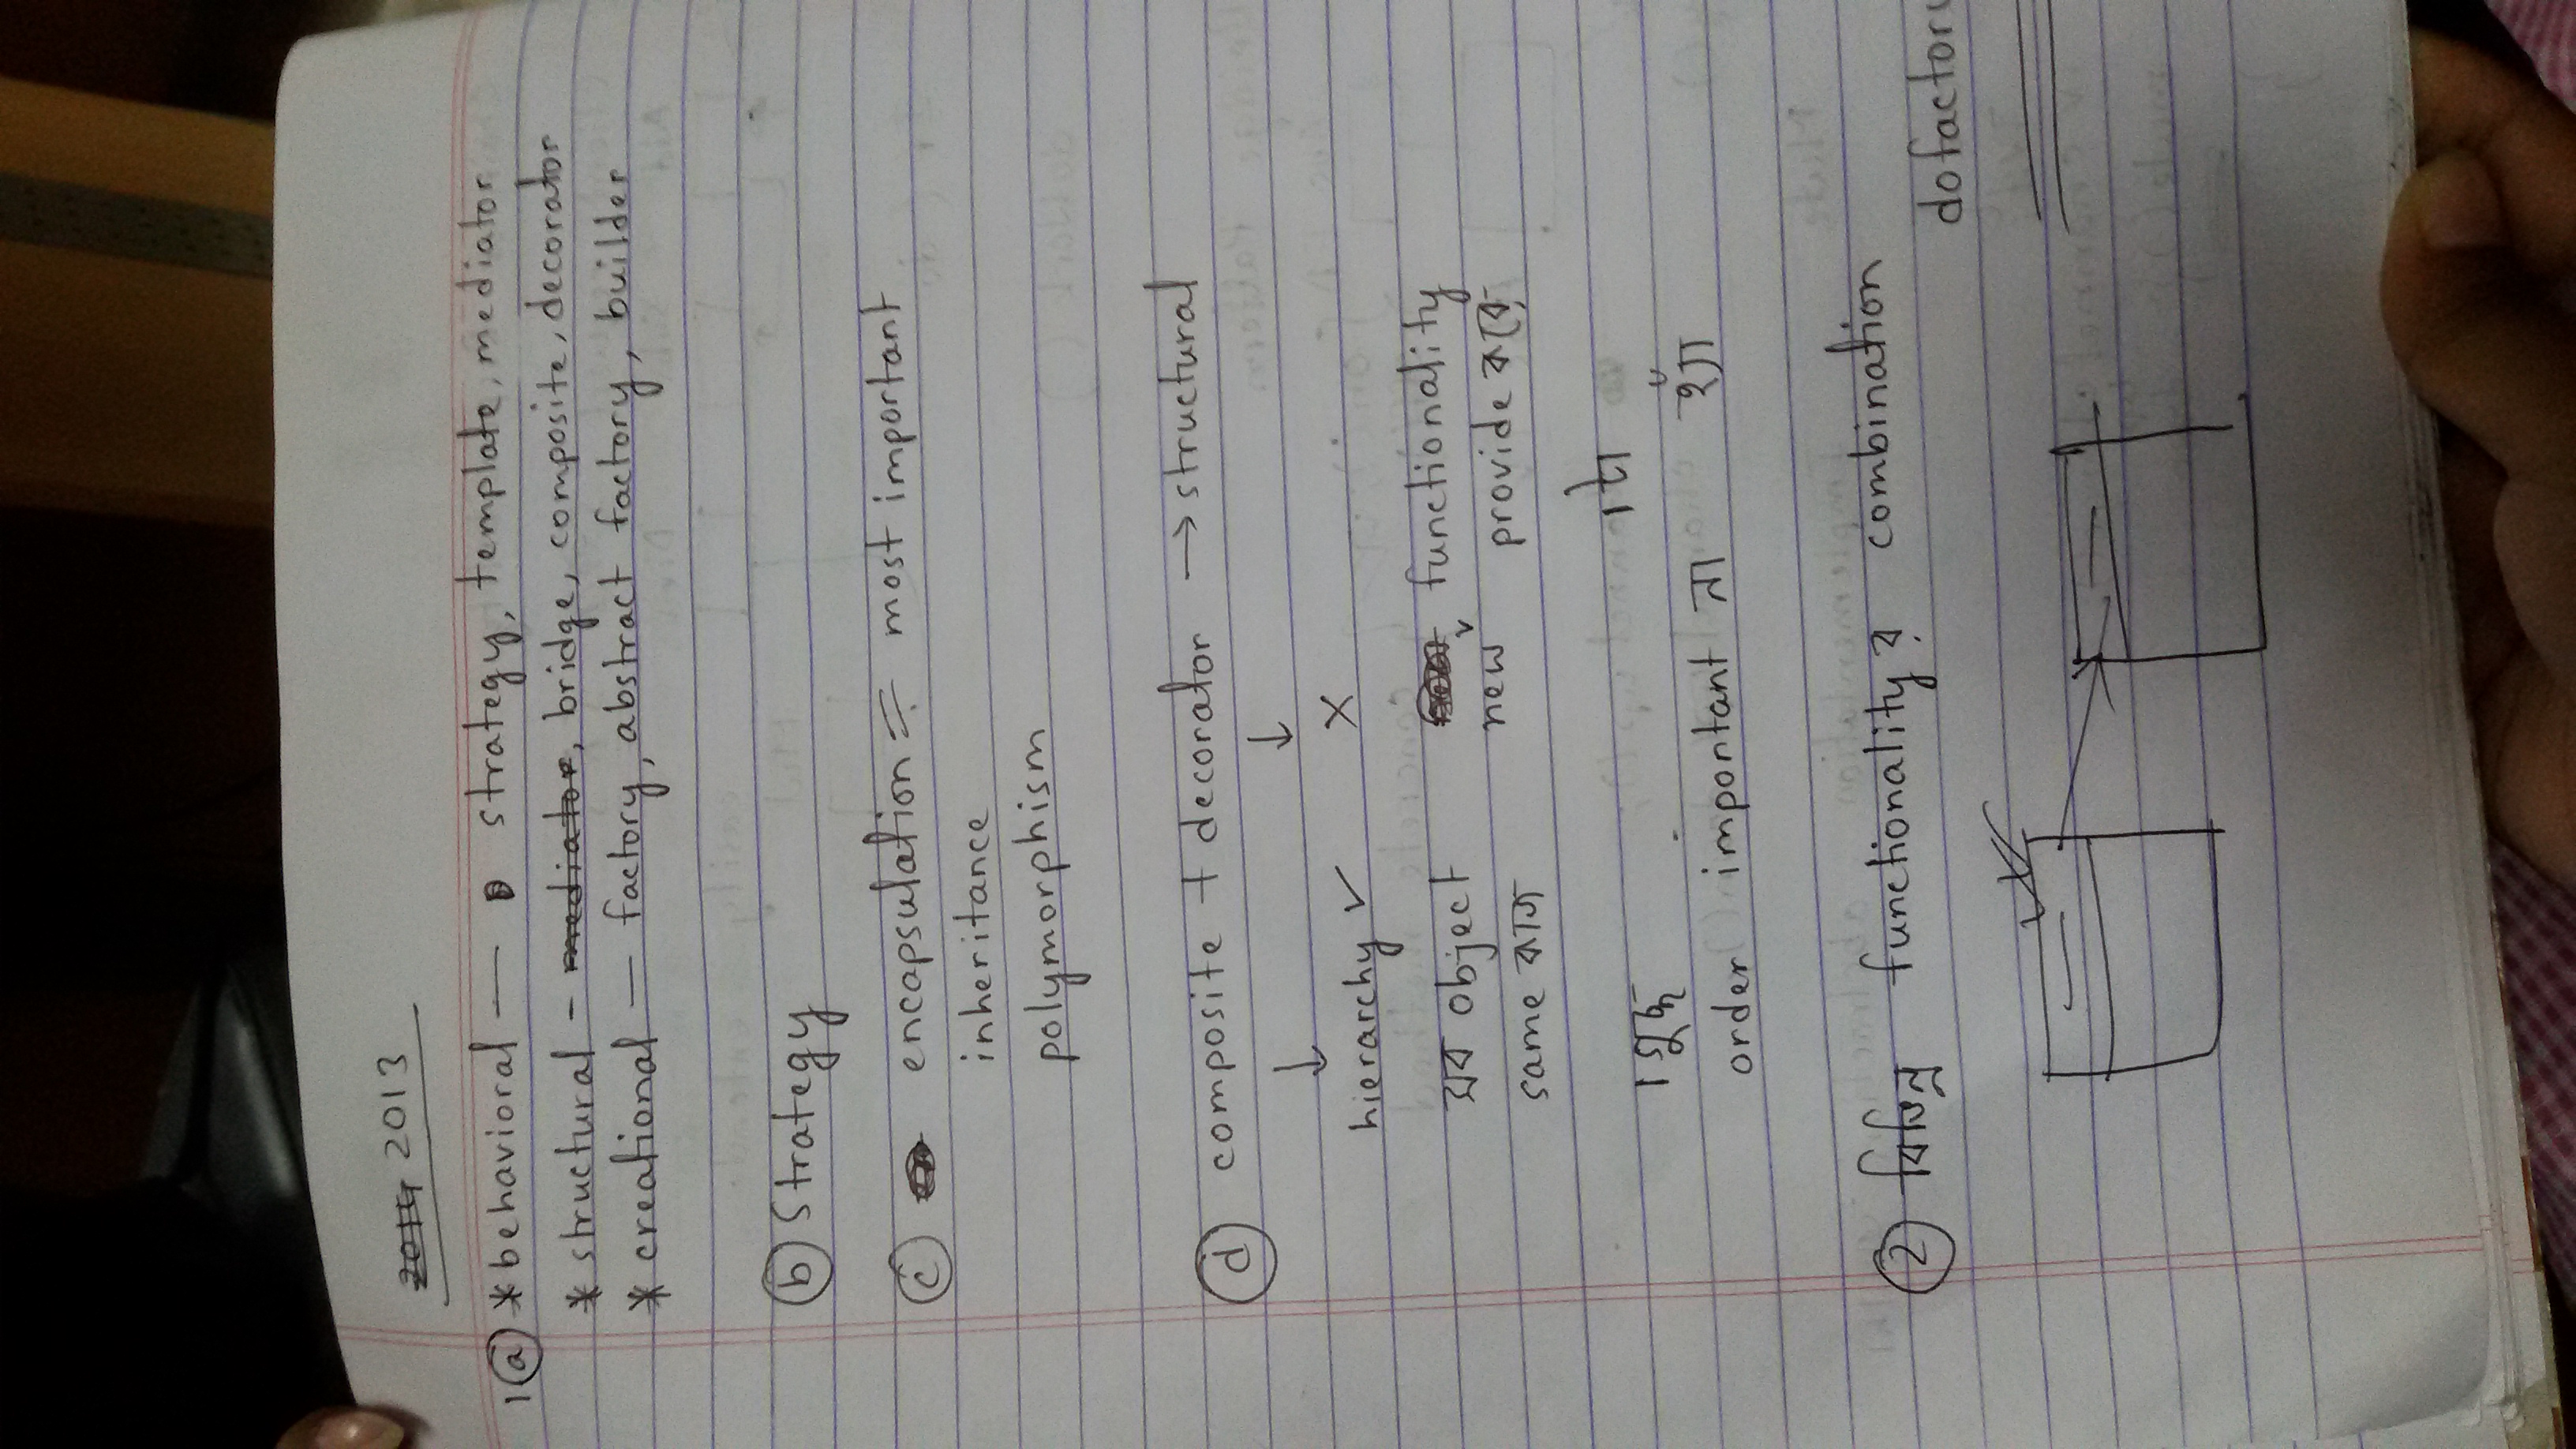 2013
1 (a) * behavioral — strategy, template, mediator
* structural - mediator, bridge, composite, decorator
* creational — factory, abstract factory, builder
(b) Strategy
(c) encapsulation = most important
inheritance
polymorphism
(d) composite + decorator → structural
↓ ↓
hierarchy ✓ X
সব object functionality
new provide করে
same কাজ
১টা
১গুচ্ছ
order important না হ্যাঁ
(2) বিভিন্ন functionality র combination
dofactory